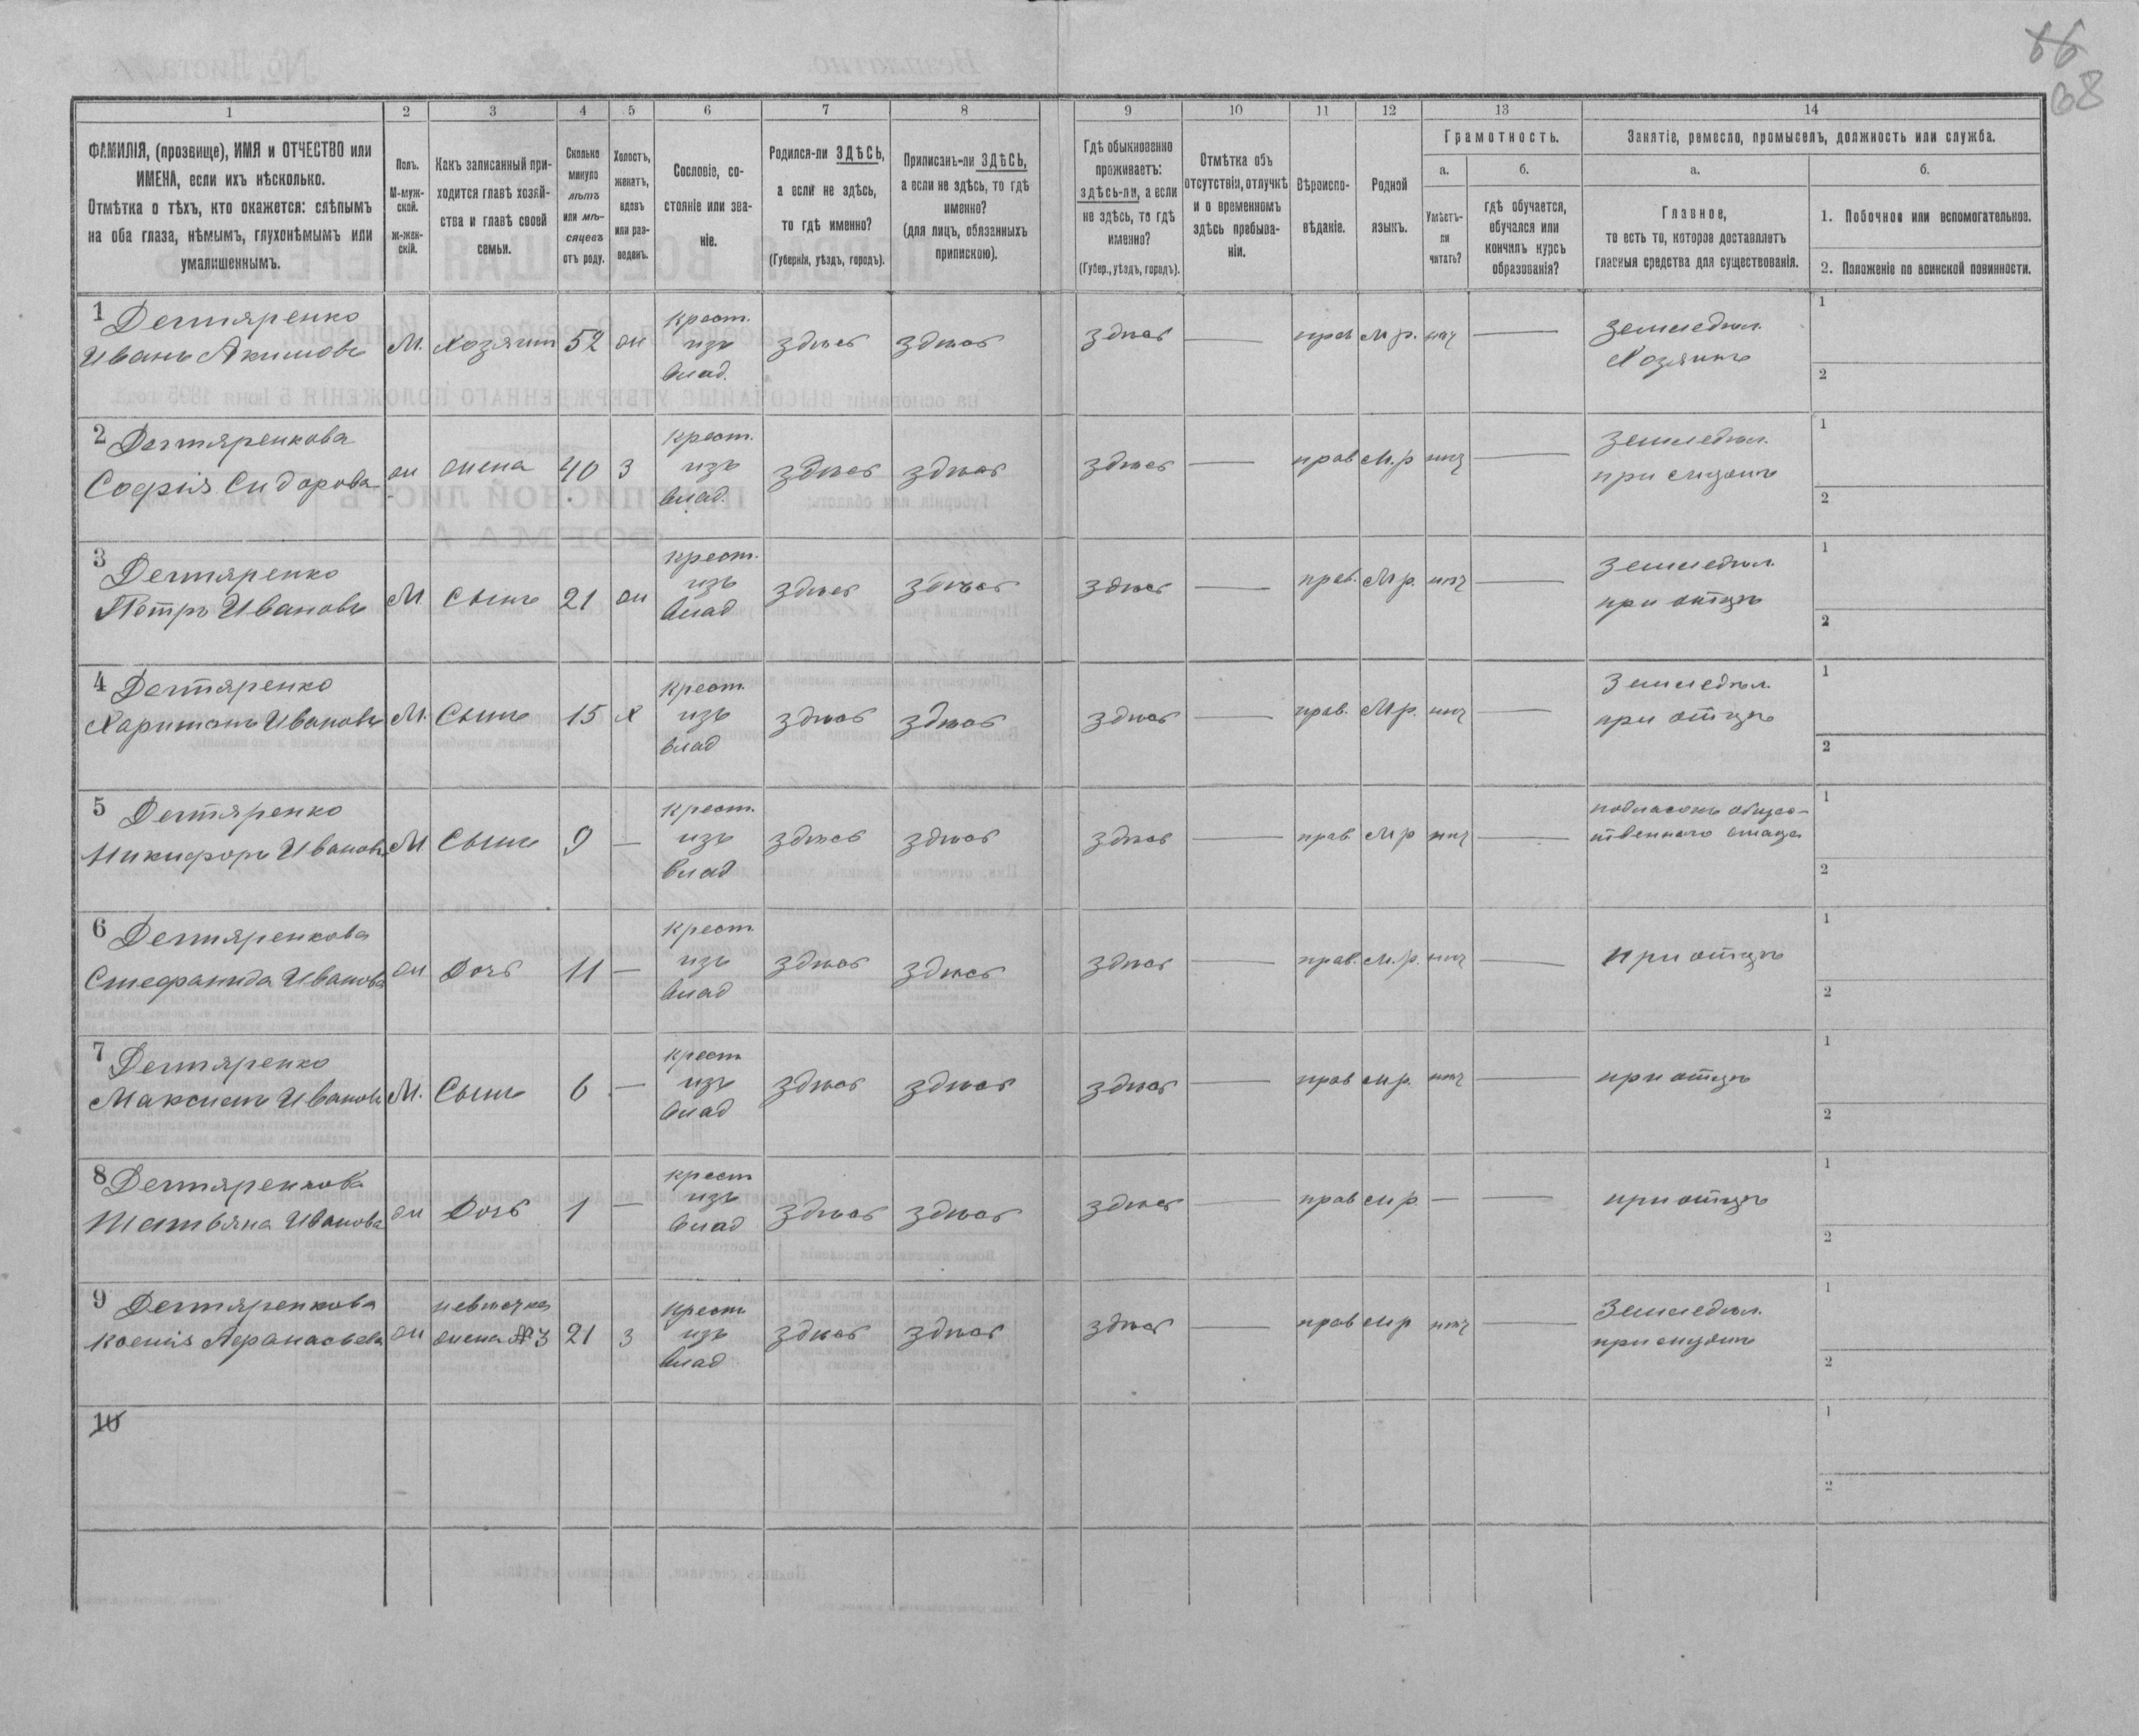 66
68
1 2 3 4 5 6 7 8 9 10 11 12 13 14
ФАМИЛІЯ, (прозвище), ИМЯ и ОТЧЕСТВО или
ИМЕНА, если ихъ нѣсколько.
Отмѣтка о тѣхъ, кто окажется: слѣпымъ
на оба глаза, нѣмымъ, глухонѣмымъ или
умалишеннымъ.
Полъ.
М-муж-
ской.
Ж-жен-
скій.
Какъ записанный при-
ходится главѣ хозяй-
ства и главѣ своей
семьи.
Сколько
минуло
лѣтъ
или мѣ-
сяцевъ
отъ роду.
Холостъ,
женатъ,
вдовъ
или раз-
веденъ.
Сословіе, со-
стояніе или зва-
ніе.
Родился-ли ЗДѢСЬ,
а если не здѣсь,
то гдѣ именно?
(Губернія, уѣздъ, городъ).
Приписанъ-ли ЗДѢСЬ,
а если не здѣсь, то гдѣ
именно?
(для лицъ, обязанныхъ
припискою).
Гдѣ обыкновенно
проживаетъ:
здѣсь-ли, а если
не здѣсь, то гдѣ
именно?
(Губер., уѣздъ, городъ).
Отмѣтка объ
отсутствіи, отлучкѣ
и о временномъ
здѣсь пребыва-
ніи.
Вѣроиспо-
вѣданіе.
Родной
языкъ.
Грамотность.
а.
Умѣетъ-
ли
читать?
б.
гдѣ обучается,
обучался или
кончилъ курсъ
образованія?
Занятіе, ремесло, промыселъ, должность или служба.
а.
Главное,
то есть то, которое доставляетъ
главныя средства для существованія.
б.
1. Побочное или вспомогательное.
2. Положеніе по воинской повинности.
1 Дегтяренко
Иванъ Акимовъ М. Хозяинъ 52 ж
крест.
изъ
влад.
здѣсь здѣсь здѣсь — прав М.р. нѣт —
земледѣл.
Хозяинъ
1
2
2 Дегтяренкова
Софія Сидорова ж жена 40 з
крест.
изъ
влад.
здѣсь здѣсь здѣсь — прав М.р нѣт —
земледѣл.
при мужѣ
1
2
3 Дегтяренко
Петръ Ивановъ М сынъ 21 ж
крест.
изъ
влад
здѣсь здѣсь здѣсь — прав. М р. нѣт —
земледѣл.
при отцѣ
1
2
4 Дегтяренко
Харитонъ Ивановъ М. Сынъ 15 х
крест.
изъ
влад
здѣсь здѣсь здѣсь — прав. М р. нѣт —
Земледѣл.
при отцѣ
1
2
5 Дегтяренко
Никифоръ Ивановъ М Сынъ 9 —
крест.
изъ
влад
здѣсь здѣсь здѣсь — прав М р нѣт —
подпасокъ общес-
твеннаго стада
1
2
6 Дегтяренкова
Стефанида Иванова ж Дочь 11 —
крест
изъ
влад
здѣсь здѣсь здѣсь — прав. М. р. нѣт —
при отцѣ
1
2
7 Дегтяренко
Максимъ Ивановъ М. Сынъ 6 —
крест
изъ
влад
здѣсь здѣсь здѣсь — прав М р. нѣт —
при отцѣ
1
2
8 Дегтяренкова
Татьяна Иванова ж Дочь 1 —
крест
изъ
влад
здѣсь здѣсь здѣсь — прав М р. — —
при отцѣ
1
2
9 Дегтяренкова
Ксенія Афанасьева ж
невѣстка
жена №3 21 з
крест
изъ
влад
здѣсь здѣсь здѣсь — прав М р нѣт —
Земледѣл.
при мужѣ
1
2
10
1
2